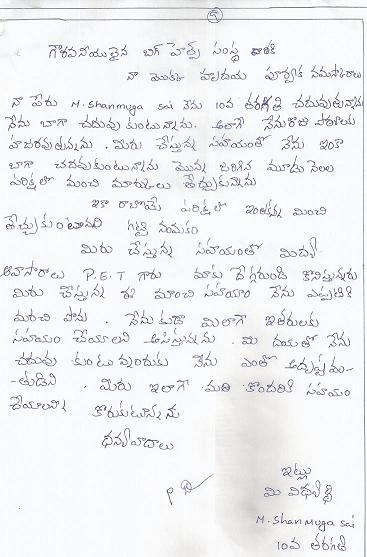 5
గౌరవనీయులైన బిగ్ హెల్ప్ సంస్థ వారికి
నా యొక్క హృదయ పూర్వక నమస్కారాలు
నా పేరు M. Shanmuga Sai నేను 10వ తరగతి చదువుతున్నాను
నేను బాగా చదువు కుంటున్నాను. అలాగే నేను
హాజరవుతున్నను. మీరు చేస్తున్న సహాయంతో నేను ఇంకా
బాగా చదువుకుంటున్నాను మొన్న జరిగిన మూడు నెలల
పరిక్షలో మంచి మార్కులు తెచ్చుకున్నాను
ఇకా రాబోయే పరిక్షలో ఇంతకన్న మించి
తెచ్చుకుంటానని గట్టి నమకం
మీరు చేస్తున్న సహాయంతో
అవసారాలు P.E.T గారు మాకు దగ్గరుండి
మీరు చేస్తున్న ఈ మంచి సహాయం నేను ఎప్పటికి
మరచి పోను. నేను కుడా మిలాగే ఇతరులకు
సహాయం చేయాలని ఆసిస్తున్నను. మి దయతో నేను
చదువు కుంటున్నందుకు నేను ఎంతో అదృష్టవం-
-తుడిని. మీరు ఇలాగే మరి కొందరికి సహయం
చేయాలని కొరుకుటున్నను
ధన్యవాదాలు
ఇట్లు
మి విధ్యార్థి
M. Shanmuga Sai
10వ తరగతి